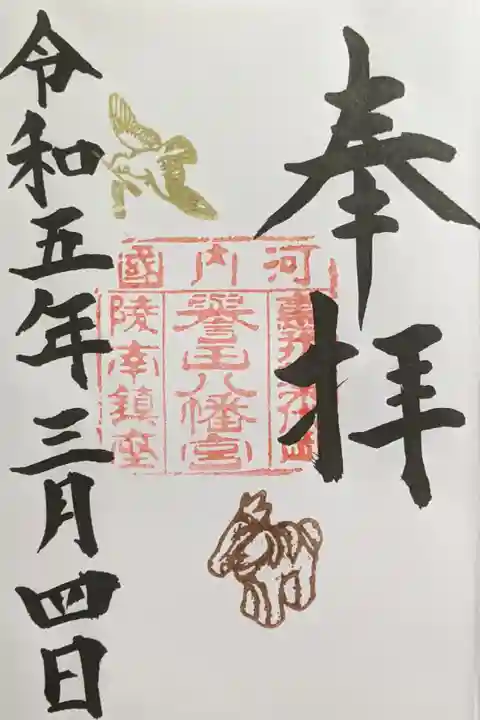 奉拝
河内國
譽王八幡宮
陵南鎮座
令和五年三月四日